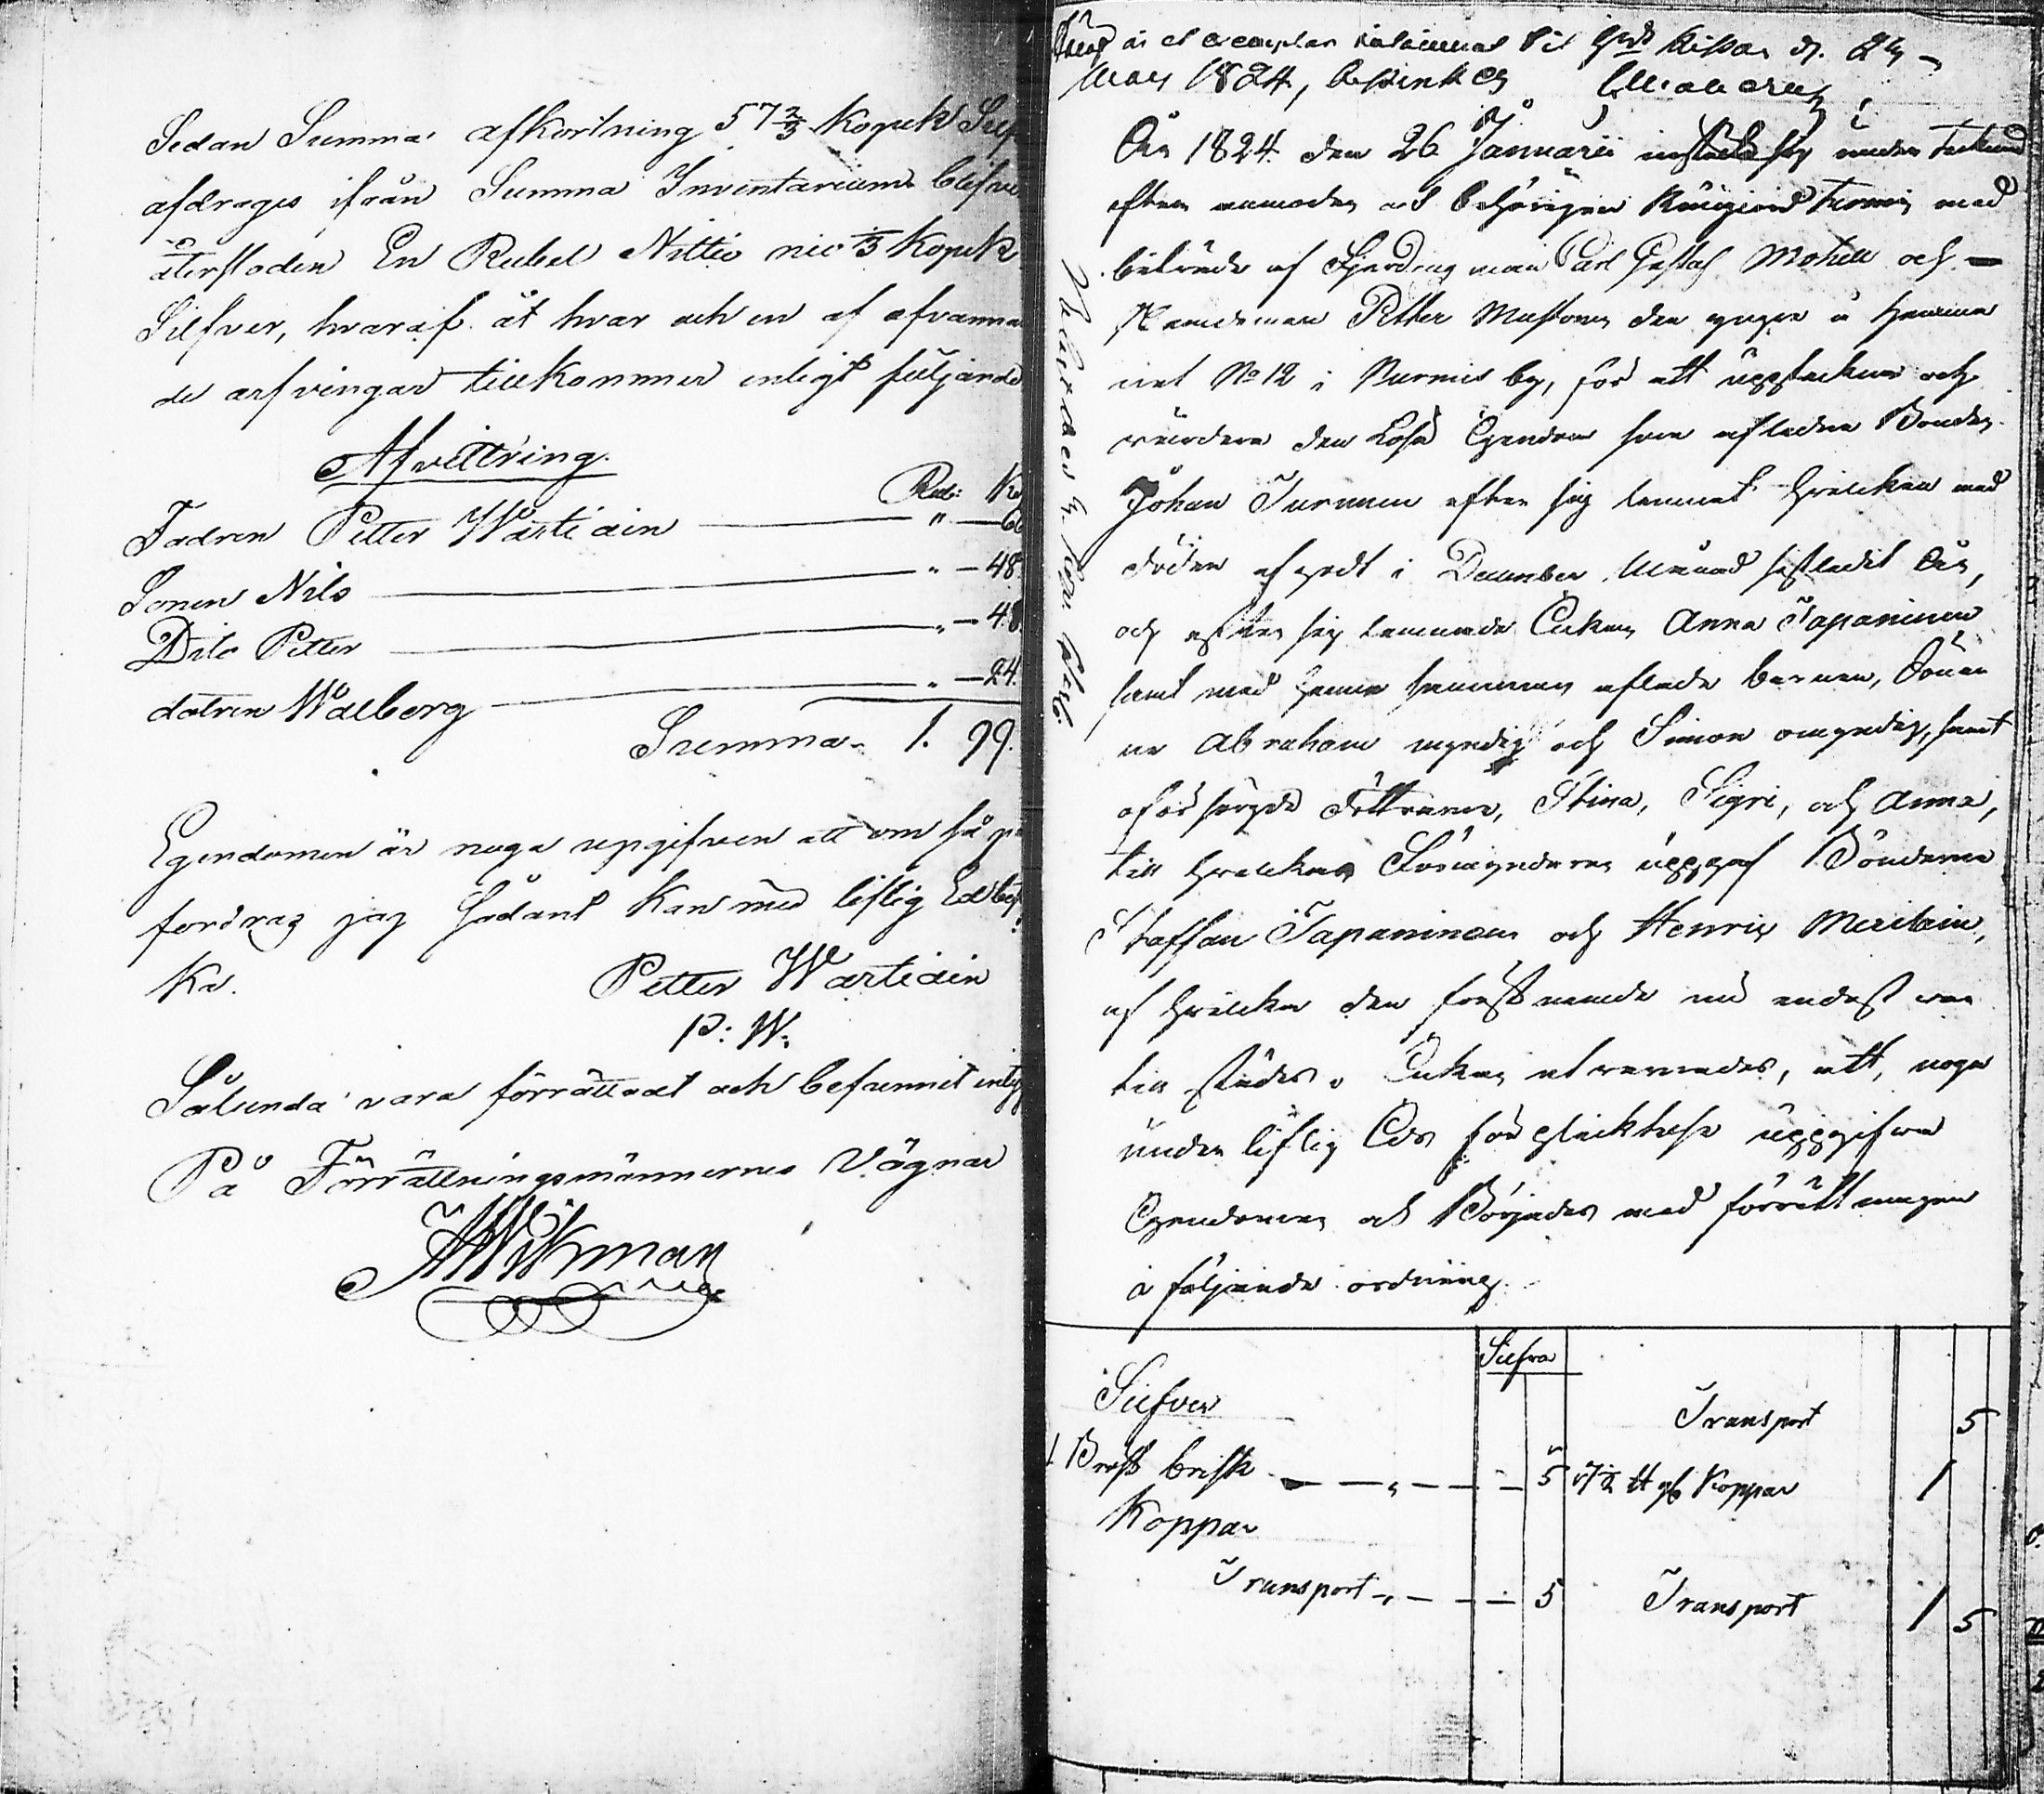 Sedan Summa afkortning 57 2/3 Kopek Silf
afdrages ifrån Summa Inventarium blifver
återstoden En Rubel Nittio nio 1/3 Kopek
Silfver, hvaraf åt hvar och en af ofvannam
de arfvingar tillkommer enligt följande
Afvittring.
Rub: Ko
Fadren Petter Wartiain " 66
Sonen Nils " 48.
Dito Petter " 48.
dotren Wålberg " 24.
Summa 1. 99.
Egendomen är noga upgifven att om så på
fordras jag sådant kan med liflig Ed bes
Ka.
Petter Wartiain
P: W.
Sålunda vara förrättadt och befunnit intyg
På Förrättningsmännernes Vägnar
Wikman
är et exemplar inlämnat til d. 24
Maij 1824,
År 1824 den 26 Januarii instälde sig undertecknad
efter anmodan at behörigen med
biträde af Fjerdingsman Carl Gustaf Motell och
Nämdeman Petter Mustonen den yngre å Hemma
net No 12 i Nurmis by, för att uppteckna och
värdera den Lösa Egendom som aflidne Bonden
Johan Turunen efter sig lemnat hvilken med
döden afgådt i December Månad sistledit År,
och efter sig lemnade Enkan Anna Tapaninen
samt med henne sammanaflade barnen, Söner
ne Abraham myndig och Simon omyndig, samt
oförsörgde Döttrarne, Stina, Sigri, och Anna,
till hvilkas Förmyndare uppgaf Bönderne
Staffan Tapaninen och Henrix Meriläin,
af hvilka den förstnemde nu endast var
tillstädes. Enkan at, noga
under liflig Eds förplicktelse uppgifva
Egendomen och Börjades med förrättningen
i följande ordning.
Silfver
Silfver Transport 5
1 Bröst brisk 5 17 1/2 ℔ gl Koppar 1
Koppar
Transport 5 Transport 1 5